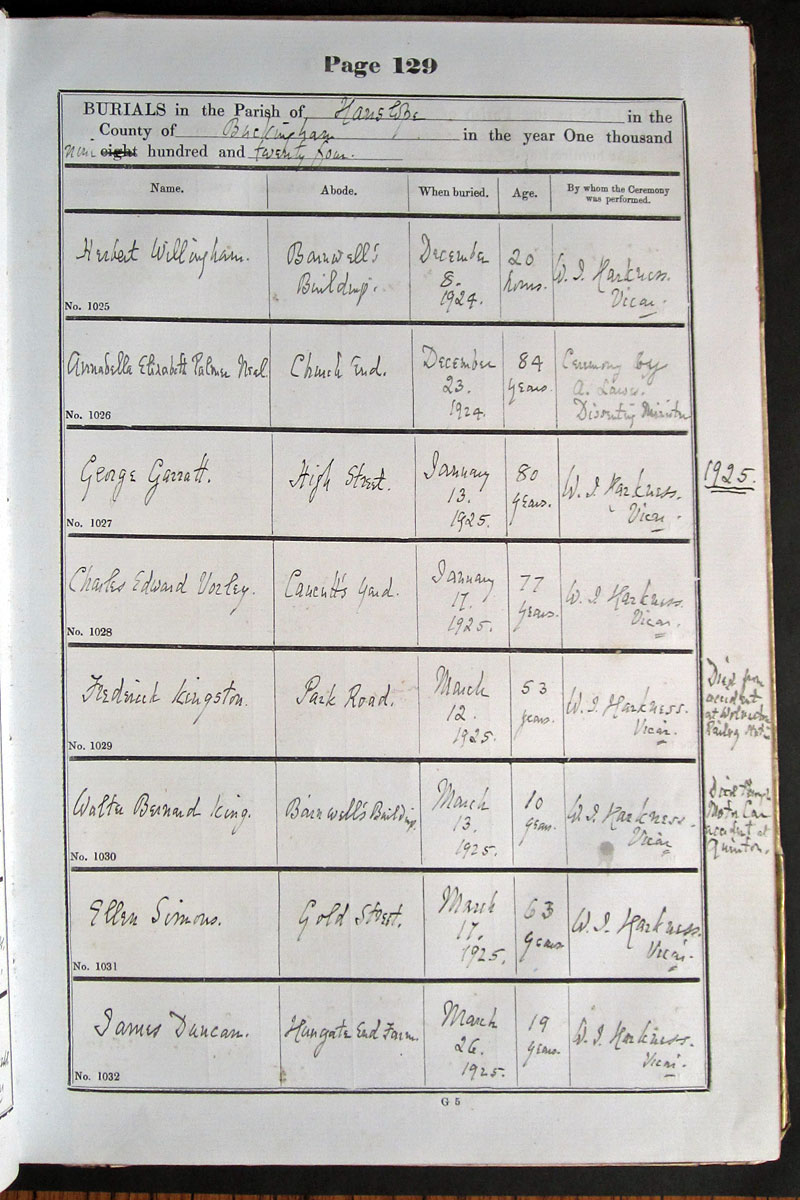 Page 129
BURIALS in the Parish of Hanslope in the
County of Buckingham in the year One thousand
nine eight hundred and twenty four.
Name. Abode. When buried. Age. By whom the Ceremony was performed.
Herbert Willingham. Barnwell's Building. December 8. 1924. 20 hours. W. J. Harkness. Vicar.
No. 1025
Annabella Elizabeth Palmer Neal Church End. December 23. 1924. 84 years. Ceremony by A. Dissenting Minister
No. 1026
George Garratt. High Street. January 13. 1925. 80 years. W. J. Harkness. Vicar.
1925.
No. 1027
Charles Edward Vorley. Caucutt's Yard. January 17. 1925. 77 years. W. J. Harkness. Vicar.
No. 1028
Frederick Kingston. Park Road. March 12. 1925. 53 years. W. J. Harkness. Vicar.
Died from
accident
at Wolverton
No. 1029
Walter Bernard King. Barnwell's Building. March 13. 1925. 10 years. W. J. Harkness. Vicar
Died through
Motor Car
accident at
Quinton.
No. 1030
Ellen Simons. Gold Street. March 17. 1925. 63 years W. J. Harkness. Vicar.
No. 1031
James Duncan. Hungate End Farm. March 26. 1925. 19 years. W. J. Harkness. Vicar.
No. 1032
G 5